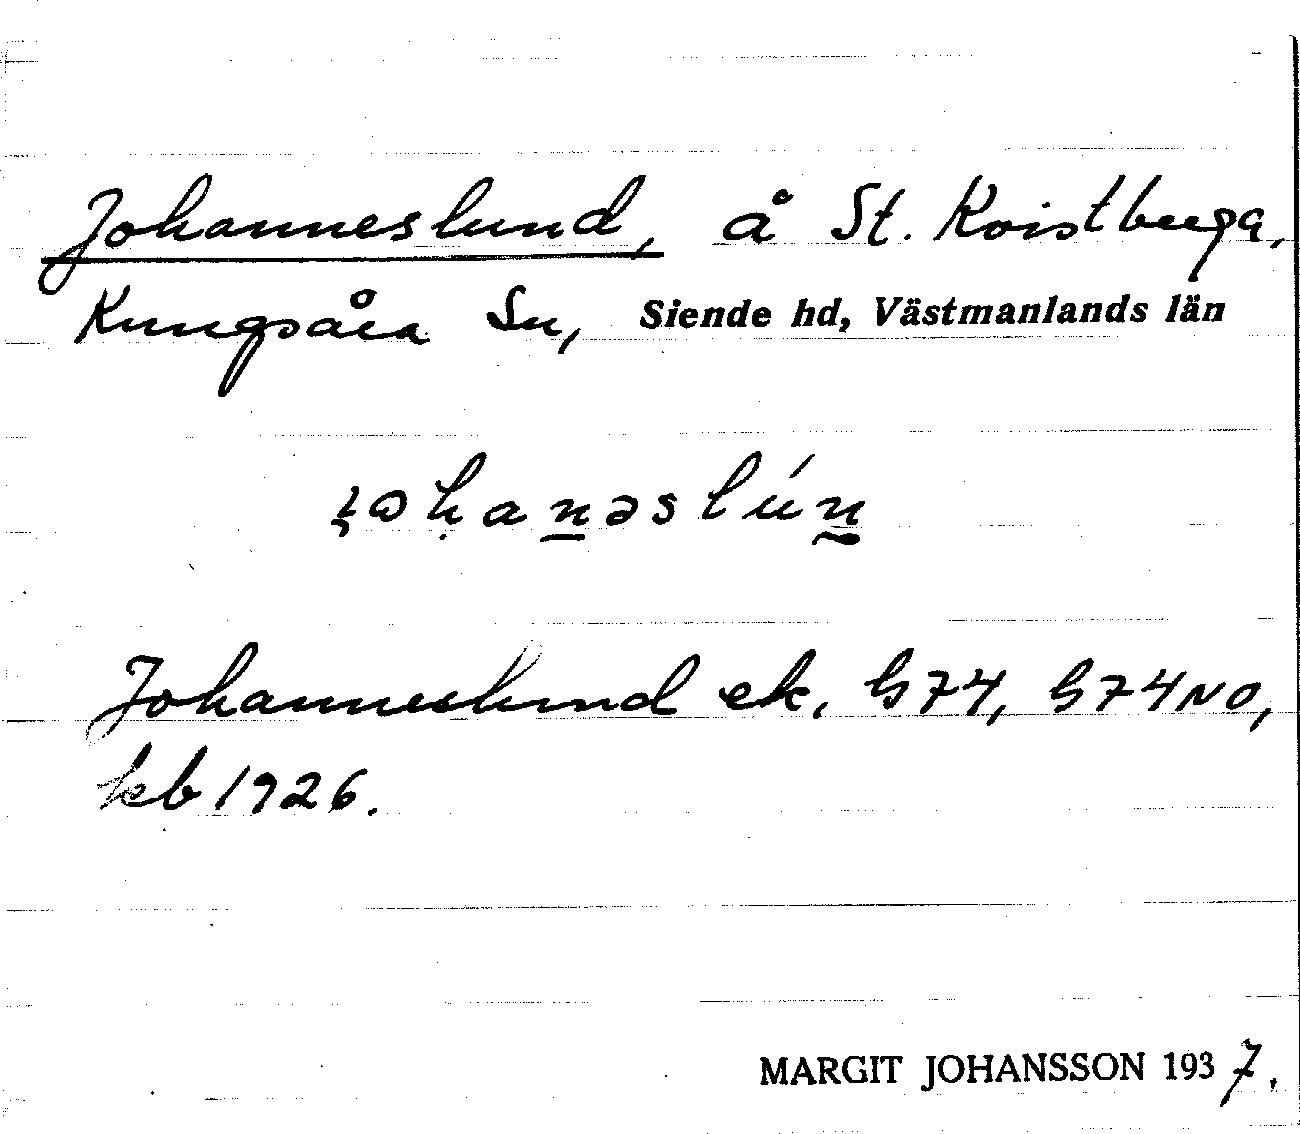 Johanneslund, å St. Kvistberga,
Kungsåra Sn, Siende hd, Västmanlands län
Johanneslund ek. G74, G74NO,
kb 1926.
MARGIT JOHANSSON 1937.